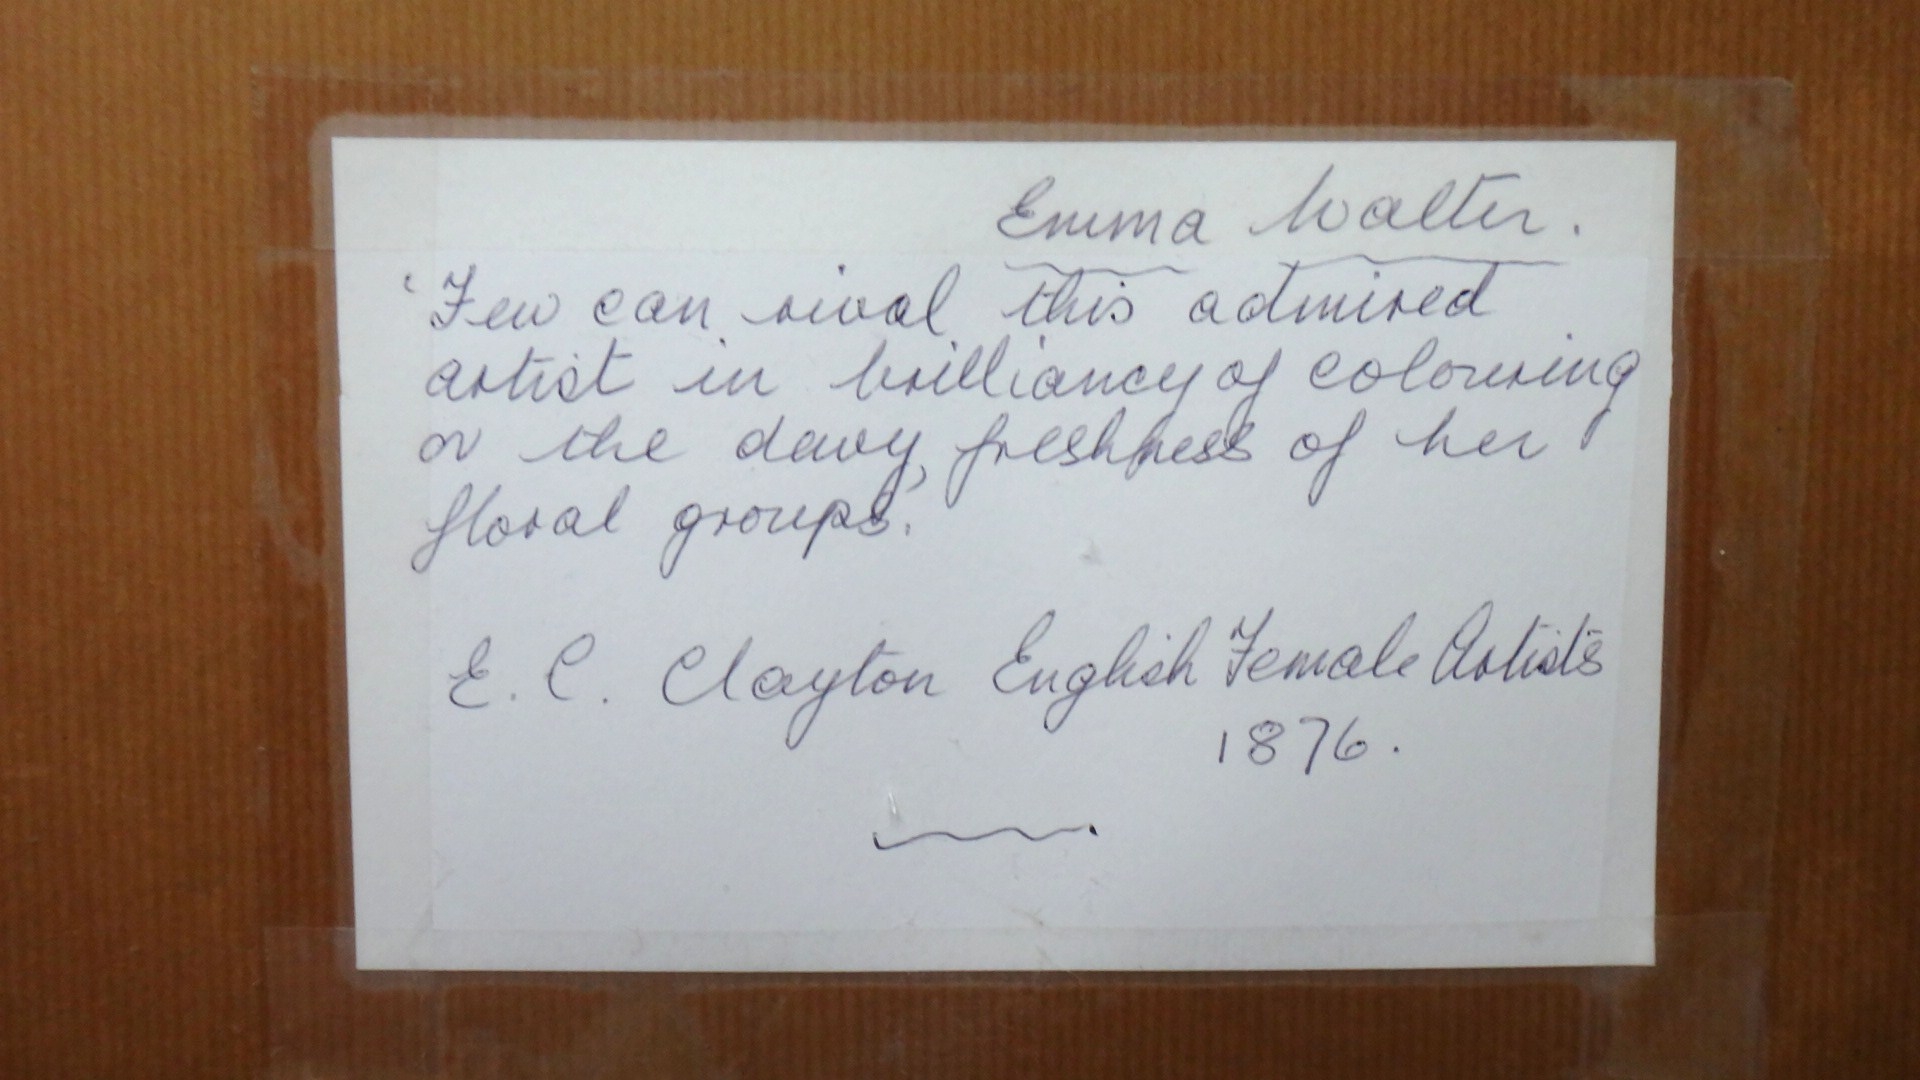 Emma Walter.
'Few can rival this admired
artist in brilliancy of colouring
or the dewy freshness of her
floral groups'.
E. C. Clayton English Female Artists
1876.